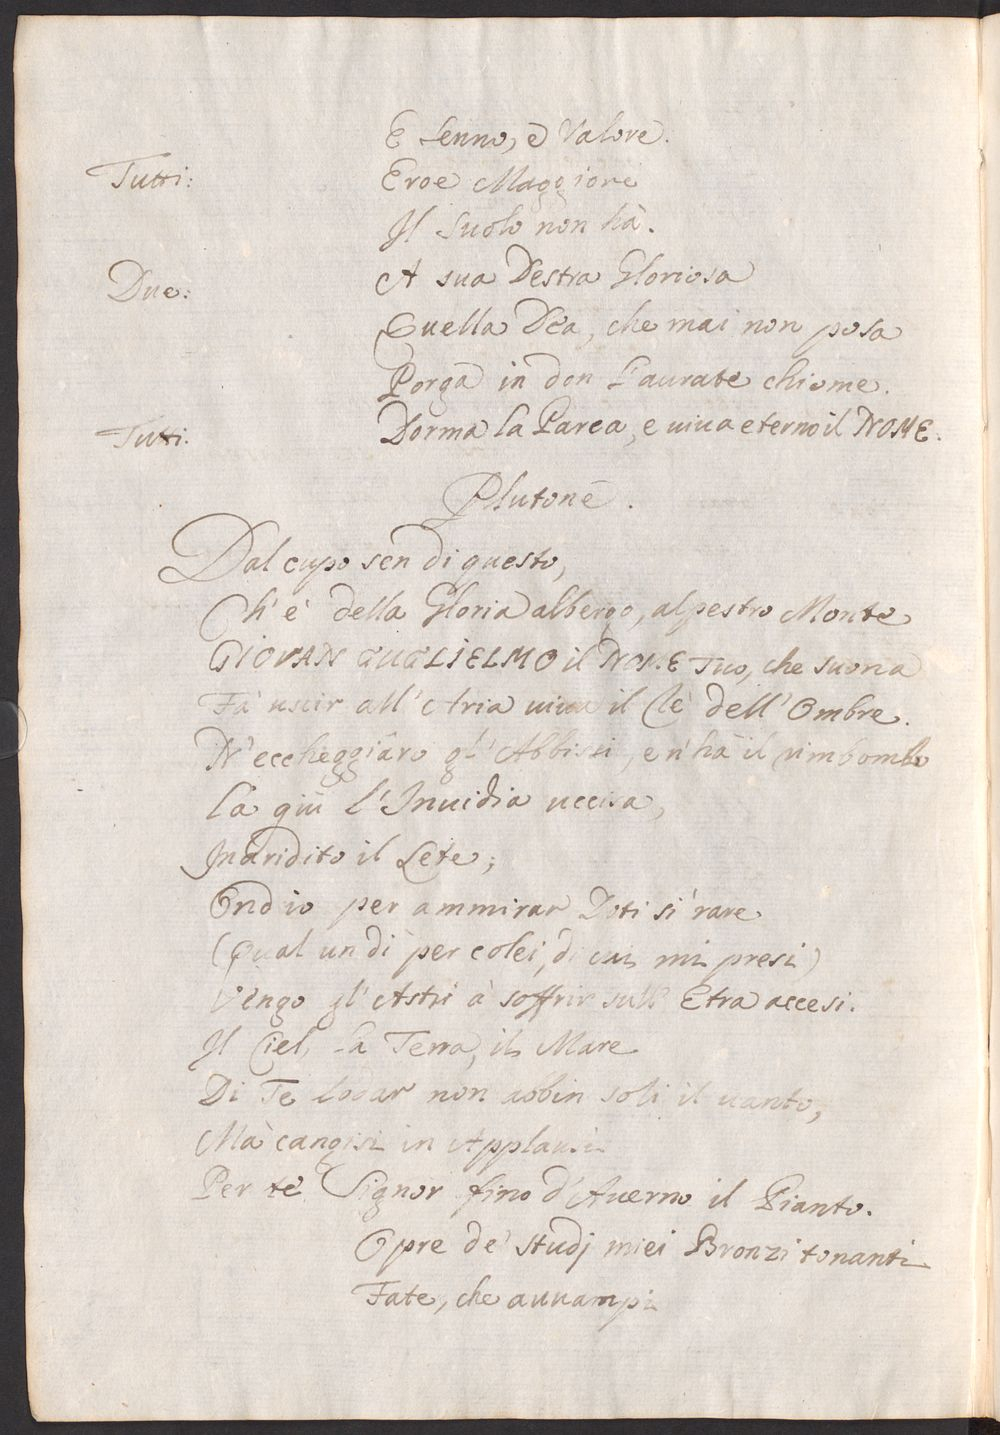 E Senno, e Valore.
Tutti: Eroe Maggiore
Il suolo non hà.
Due: A sua Destra Gloriosa
Quella Dea, che mai non posa
Porga in don l'aurate chiome.
Tutti. Dorma la Parca, e viva eterno il NOME.
Plutone.
Dal cupo sen di questo,
Ch'è della Gloria albergo, alpestro Monte
GIOVAN GUGLIELMO il NOME Tuo, che suona
Fà uscir all'Aria viva il Rè dell'Ombre.
N'eccheggiàro gl'Abbissi, e n'hà il rimbombo
Là giù l'Invidia uccisa,
Inaridito il Lete;
Ond'io per ammirar Doti sì rare
(Qual un dì per colei, di cui mi presi)
Vengo gl'Astri à soffrir sull'Etra accesi.
Il Ciel, la Terra, il Mare
Di Te lodar non abbin soli il vanto,
Mà cangisi in Applausi
Per te Signor fino d'Averno il Pianto.
Opre de' studj miei Bronzi tonanti
Fate, che avvampi